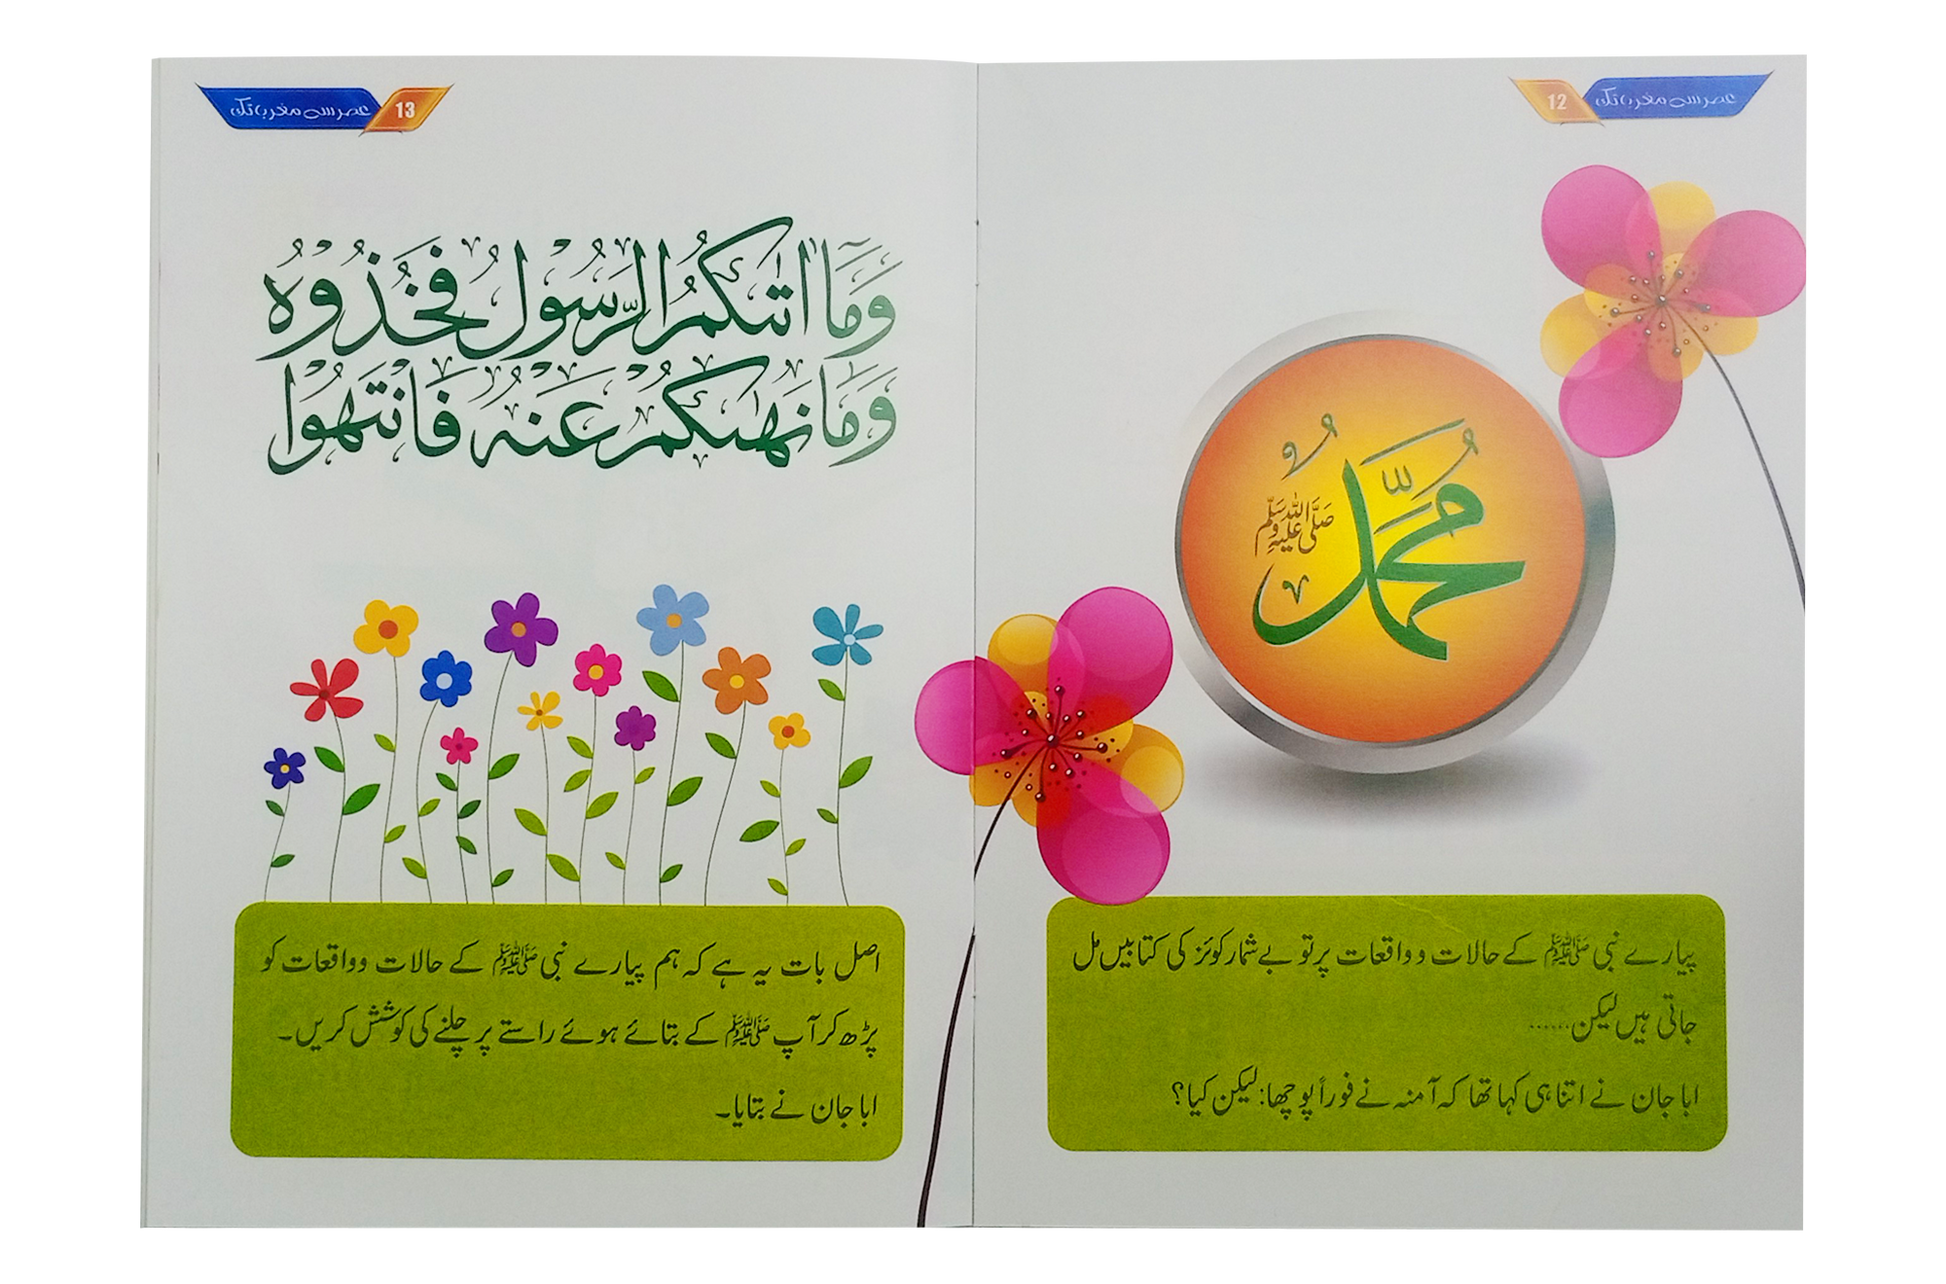 عصر سے مغرب تک
12
مُحَمَّدٌ
صَلَّی اللہُ عَلَیْہِ وَسَلَّم
پیارے نبی ﷺ کے حالات و واقعات پر تو بے شمار کوئز کی کتابیں مل
جاتی ہیں لیکن......
ابا جان نے اتنا ہی کہا تھا کہ آمنہ نے فوراً پوچھا: لیکن کیا؟
13
عصر سے مغرب تک
وَمَآ اٰتٰىكُمُ الرَّسُوْلُ فَخُذُوْهُ
وَمَا نَهٰىكُمْ عَنْهُ فَانْتَهُوْا
اصل بات یہ ہے کہ ہم پیارے نبی ﷺ کے حالات و واقعات کو
پڑھ کر آپ ﷺ کے بتائے ہوئے راستے پر چلنے کی کوشش کریں۔
ابا جان نے بتایا۔